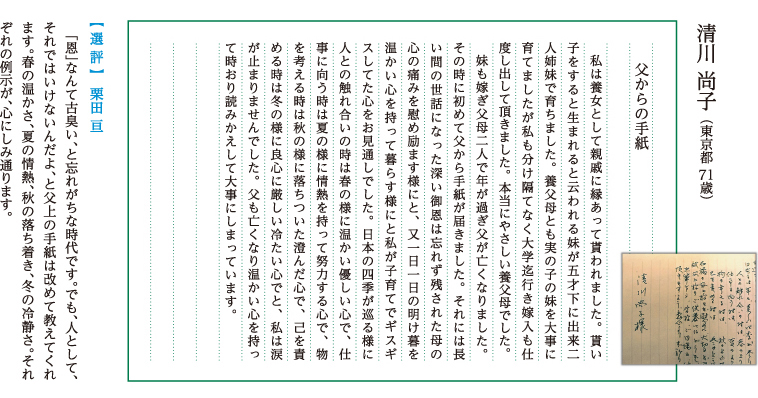 清川 尚子（東京都 71歳）
父からの手紙
私は養女として親戚に縁あって貰われました。貰い
子をすると生まれると云われる妹が五才下に出来二
人姉妹で育ちました。養父母とも実の子の妹を大事に
育てましたが私も分け隔てなく大学迄行き嫁入も仕
度し出して頂きました。本当にやさしい養父母でした。
妹も嫁ぎ父母二人で年が過ぎ父が亡くなりました。
その時に初めて父から手紙が届きました。それには長
い間の世話になった深い御恩は忘れず残された母の
心の痛みを慰め励ます様にと、又一日一日の明け暮を
温かい心を持って暮らす様にと私が子育てでギスギ
スしてた心をお見通しでした。日本の四季が巡る様に
人との触れ合いの時は春の様に温かい優しい心で、仕
事に向う時は夏の様に情熱を持って努力する心で、物
を考える時は秋の様に落ちついた澄んだ心で、己を責
める時は冬の様に良心に厳しい冷たい心でと、私は涙
が止まりませんでした。父も亡くなり温かい心を持っ
て時おり読みかえして大事にしまっています。
清川尚子様
【選評】 栗田 亘
「恩」なんて古臭い、と忘れがちな時代です。でも、人として、
それではいけないんだよ、と父上の手紙は改めて教えてくれ
ます。春の温かさ、夏の情熱、秋の落ち着き、冬の冷静さ。それ
ぞれの例示が、心にしみ通ります。